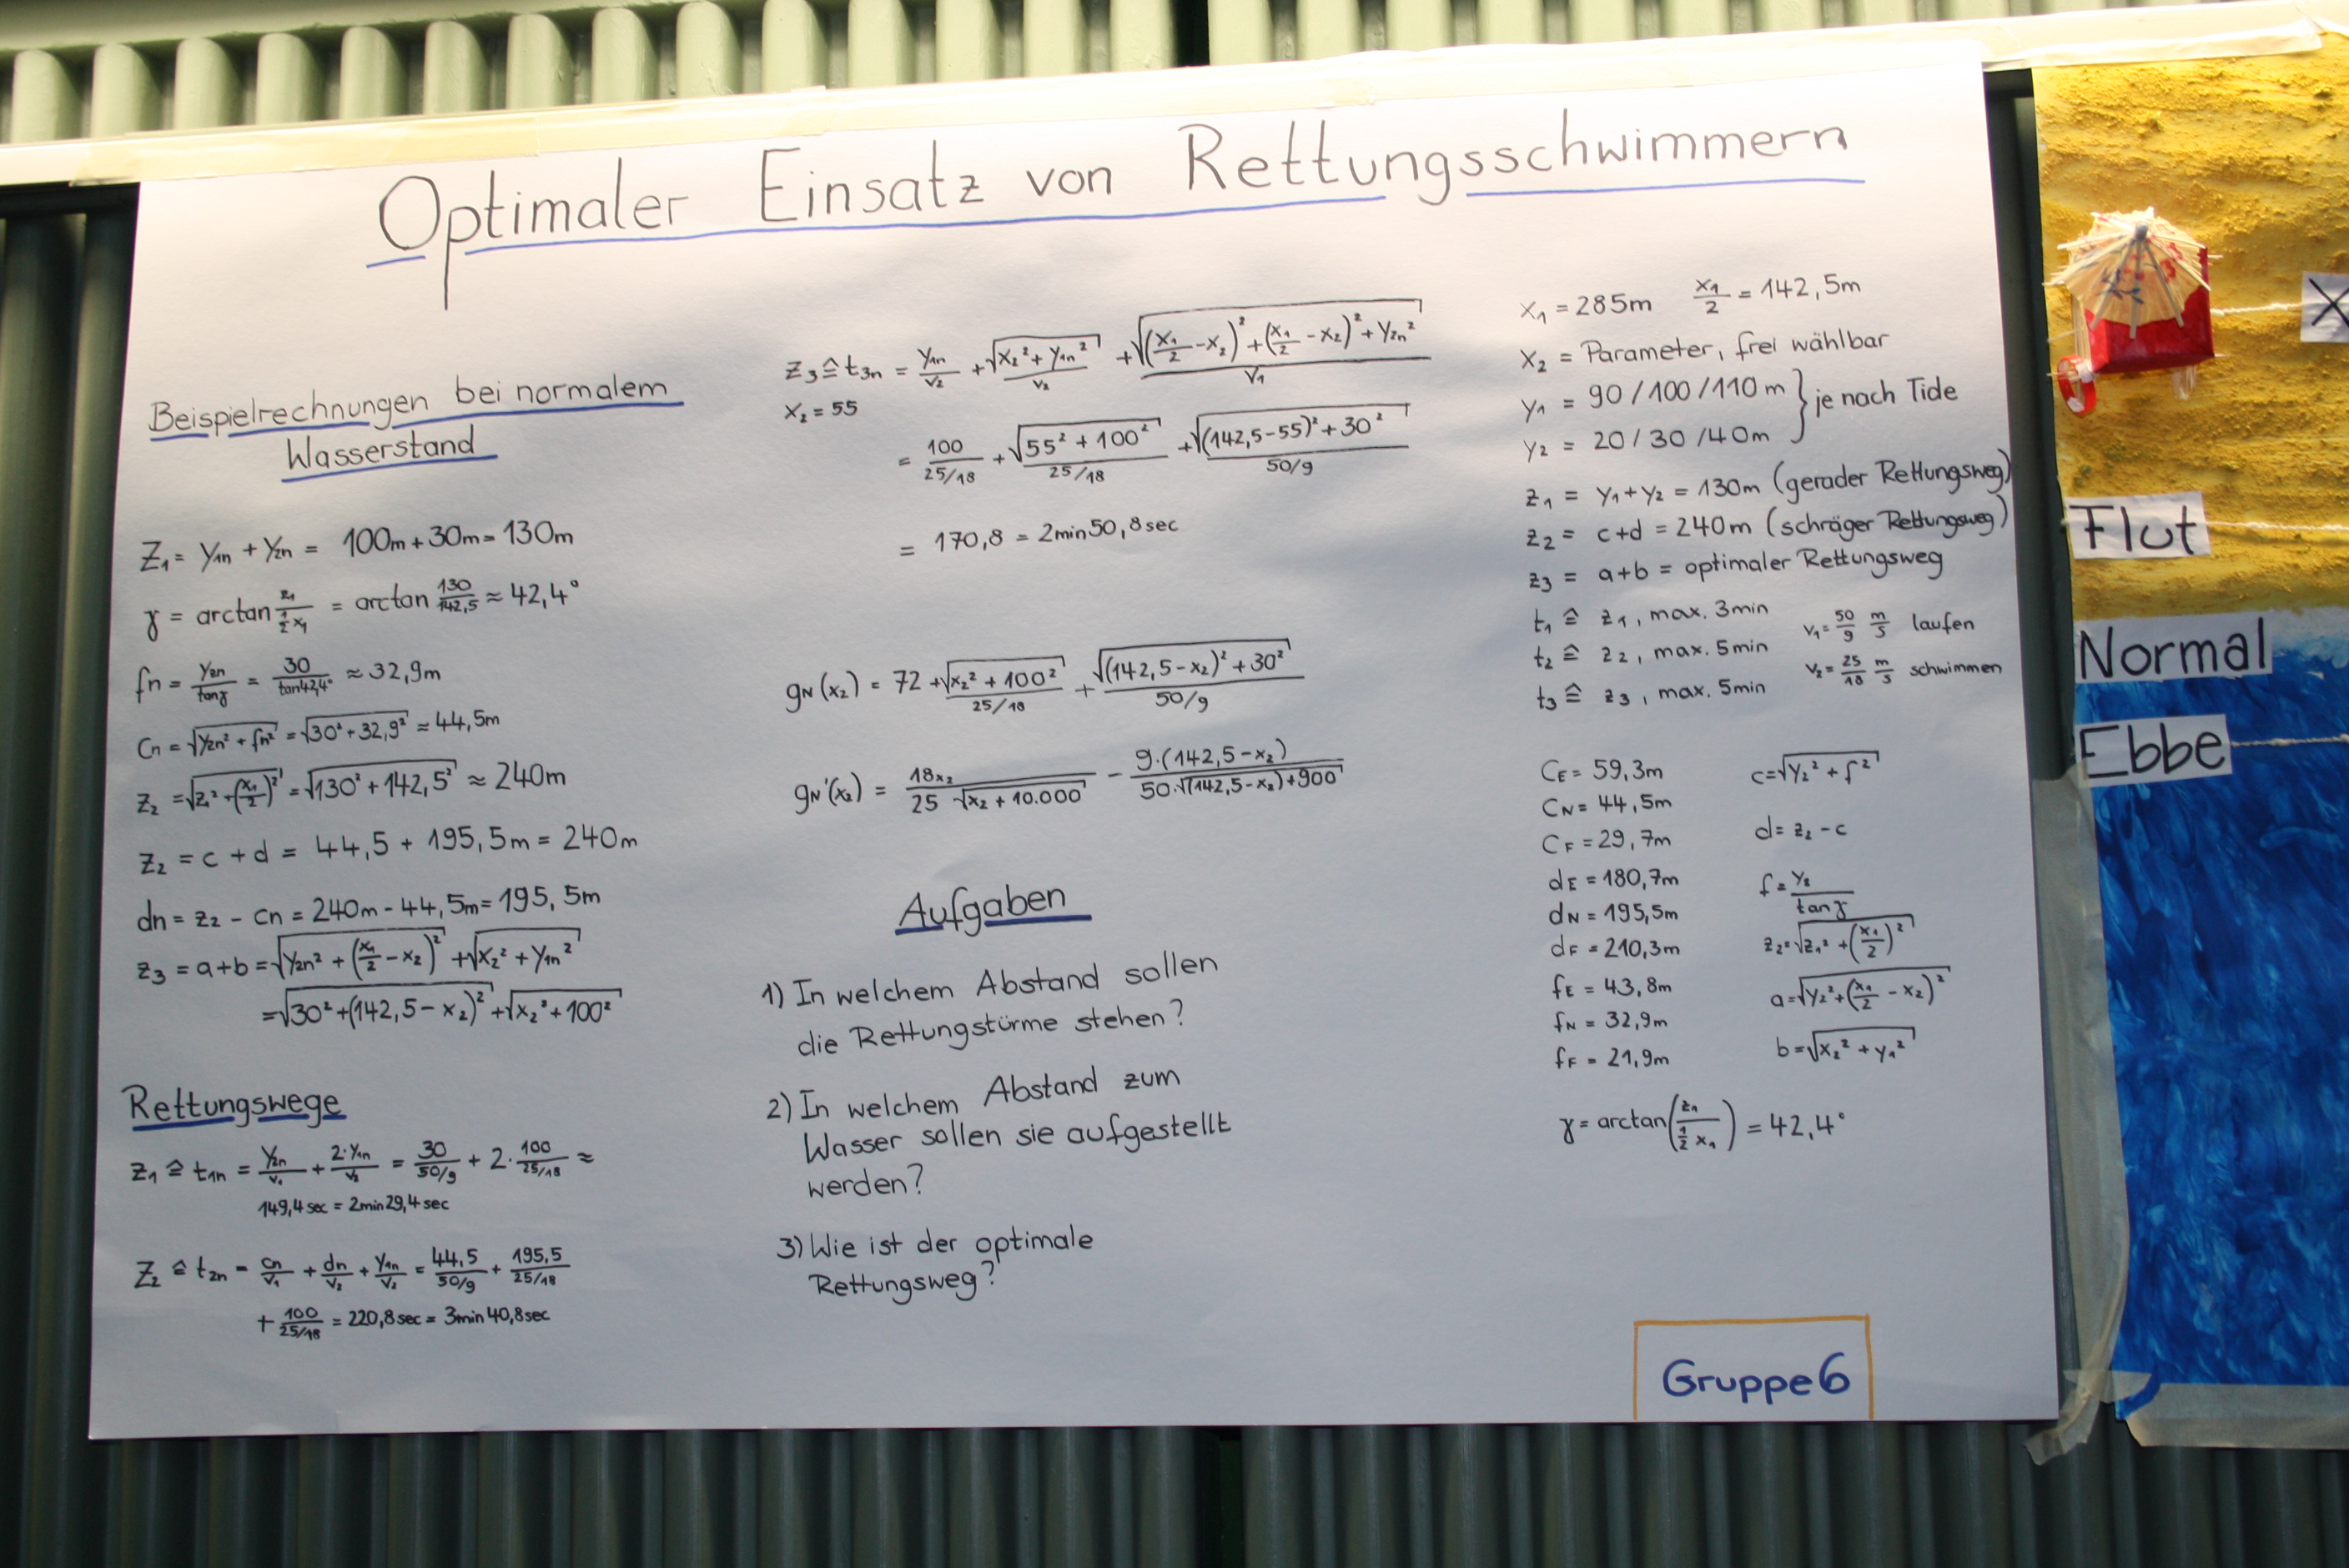 Optimaler Einsatz von Rettungsschwimmern
Beispielrechnungen bei normalem
Wasserstand
Z₁ = y₁ₙ + y₂ₙ = 100m + 30m = 130m
γ = arctan z₁/(½ x₁) = arctan 130/142,5 ≈ 42,4°
fn = y₂ₙ/tanγ = 30/tan42,4° ≈ 32,9m
Cn = √(y₂ₙ² + fn²) = √(30² + 32,9²) ≈ 44,5m
Z₂ = √(z₁² + (x₁/2)²) = √(130² + 142,5²) ≈ 240m
Z₂ = c + d = 44,5 + 195,5m = 240m
dn = z₂ - cn = 240m - 44,5m = 195,5m
z₃ = a+b = √(y₂ₙ² + (x₁/2 - x₂)²) + √(x₂² + y₁ₙ²)
= √(30² + (142,5 - x₂)²) + √(x₂² + 100²)
Rettungswege
Z₁ ≙ t₁ₙ = y₂ₙ/v₁ + 2·y₁ₙ/v₂ = 30/50/9 + 2· 100/25/18 ≈
149,4 sec = 2min29,4sec
Z₂ ≙ t₂ₙ = cn/v₁ + dn/v₂ + y₁ₙ/v₂ = 44,5/50/9 + 195,5/25/18
+ 100/25/18 = 220,8 sec = 3min 40,8sec
Z₃ ≙ t₃ₙ = y₁ₙ/v₂ + √(x₂² + y₁ₙ²)/v₂ + √((x₁/2 - x₂)² + (x₁/2 - x₂)² + y₂ₙ²)/v₁
x₂ = 55
= 100/25/18 + √(55² + 100²)/25/18 + √((142,5-55)² + 30²)/50/9
= 170,8 = 2min50,8sec
gN(x₂) = 72 + √(x₂² + 100²)/25/18 + √((142,5 - x₂)² + 30²)/50/9
gN'(x₂) = 18x₂/25 √(x₂ + 10.000) - 9·(142,5 - x₂)/50·√((142,5 - x₂) + 900)
Aufgaben
1) In welchem Abstand sollen
die Rettungstürme stehen?
2) In welchem Abstand zum
Wasser sollen sie aufgestellt
werden?
3) Wie ist der optimale
Rettungsweg?
x₁ = 285m x₁/2 = 142,5m
x₂ = Parameter, frei wählbar
y₁ = 90 / 100 / 110 m } je nach Tide
y₂ = 20 / 30 / 40m
z₁ = y₁ + y₂ = 130m (gerader Rettungsweg)
z₂ = c+d = 240m (schräger Rettungsweg)
z₃ = a+b = optimaler Rettungsweg
t₁ ≙ z₁, max. 3min v₁ = 50/9 m/s laufen
t₂ ≙ z₂, max. 5min v₂ = 25/18 m/s schwimmen
t₃ ≙ z₃, max. 5min
CE = 59,3m c = √(y₂² + f²)
CN = 44,5m
CF = 29,7m d = z₂ - c
dE = 180,7m f = y₂/tanγ
dN = 195,5m
dF = 210,3m z₂ = √(z₁² + (x₁/2)²)
fE = 43,8m a = √(y₂² + (x₁/2 - x₂)²)
fN = 32,9m
fF = 21,9m b = √(x₂² + y₁²)
γ = arctan(z₁/(½ x₁)) = 42,4°
Gruppe 6
X
Flut
Normal
Ebbe